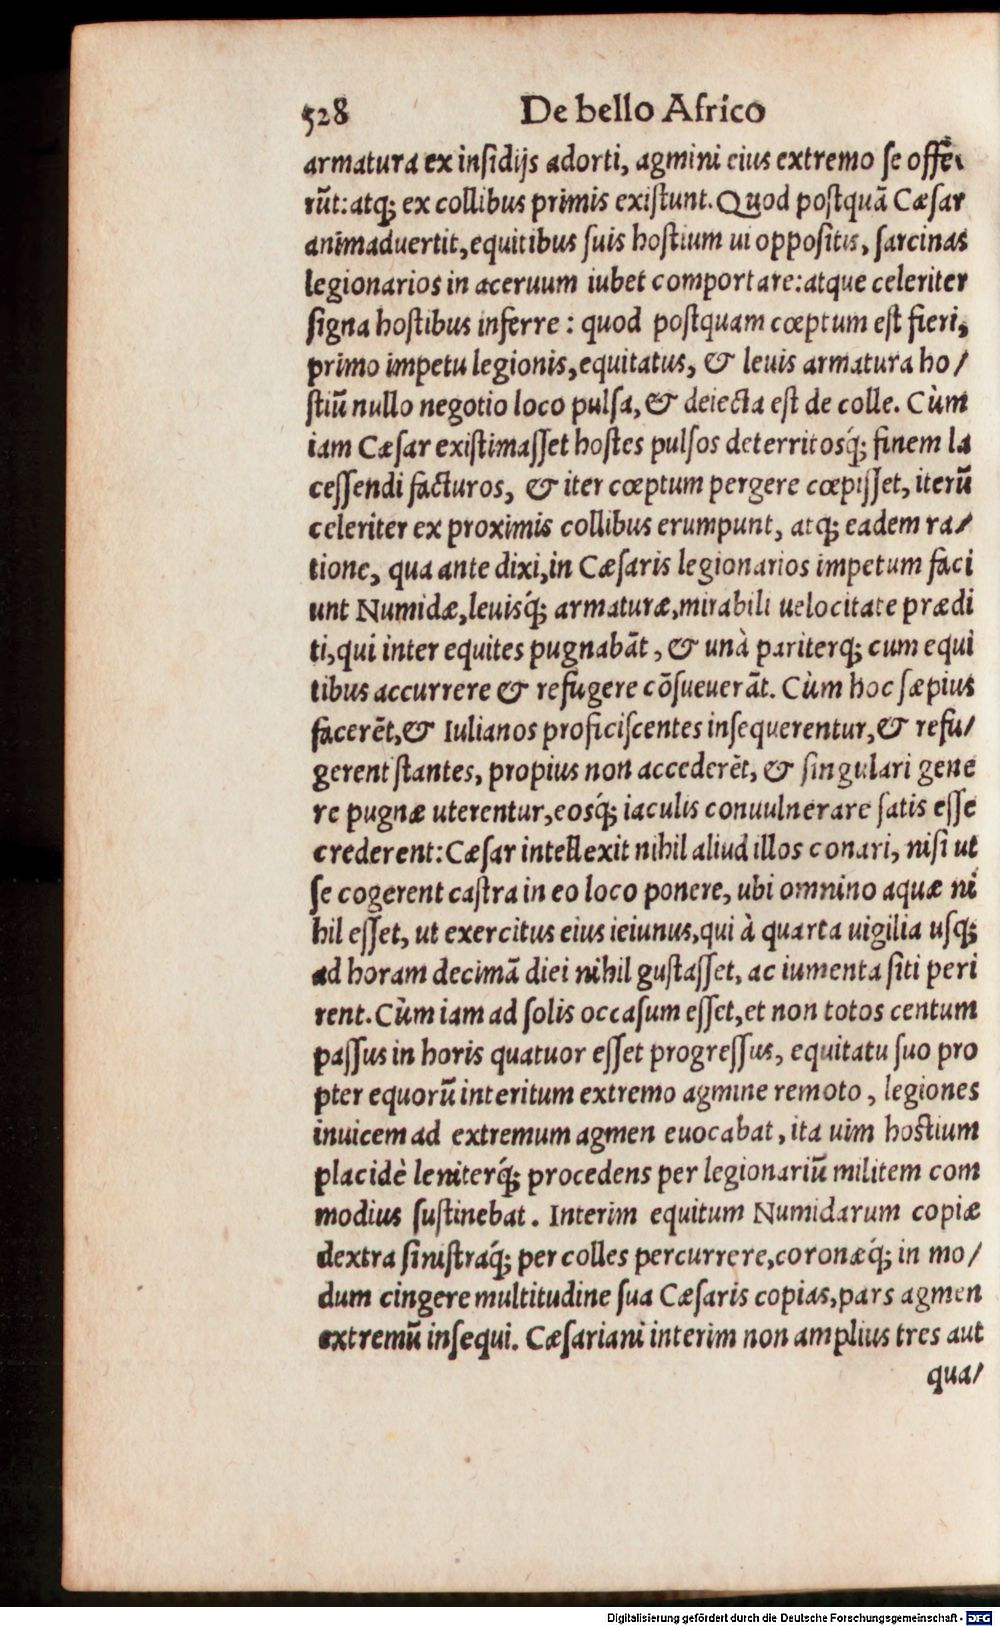 528 De bello Africo
armatura ex insidijs adorti, agmini eius extremo se offē
rūt: atq; ex collibus primis existunt. Quod postquā Cæsar
animaduertit, equitibus suis hostium ui oppositis, sarcinas
legionarios in aceruum iubet comportare: atque celeriter
signa hostibus inferre: quod postquam cœptum est fieri,
primo impetu legionis, equitatus, & leuis armatura ho/
stiū nullo negotio loco pulsa, & deiecta est de colle. Cùm
iam Cæsar existimasset hostes pulsos deterritosq́; finem la
cessendi facturos, & iter cœptum pergere cœpisset, iterū
celeriter ex proximis collibus erumpunt, atq; eadem ra/
tione, qua ante dixi, in Cæsaris legionarios impetum faci
unt Numidæ, leuisq́; armaturæ, mirabili uelocitate prædi
ti, qui inter equites pugnabāt, & unà pariterq; cum equi
tibus accurrere & refugere cōsueuerāt. Cùm hoc sæpius
facerēt, & Iulianos proficiscentes insequerentur, & refu/
gerent stantes, propius non accederēt, & singulari gene
re pugnæ uterentur, eosq́; iaculis conuulnerare satis esse
crederent: Cæsar intellexit nihil aliud illos conari, nisi ut
se cogerent castra in eo loco ponere, ubi omnino aquæ ni
hil esset, ut exercitus eius ieiunus, qui à quarta uigilia usq;
ad horam decimā diei nihil gustasset, ac iumenta siti peri
rent. Cùm iam ad solis occasum esset, et non totos centum
passus in horis quatuor esset progressus, equitatu suo pro
pter equorū interitum extremo agmine remoto, legiones
inuicem ad extremum agmen euocabat, ita uim hostium
placidè leniterq́; procedens per legionariū militem com
modius sustinebat. Interim equitum Numidarum copiæ
dextra sinistraq́; per colles percurrere, coronæq́; in mo/
dum cingere multitudine sua Cæsaris copias, pars agmen
extremū insequi. Cæsariani interim non amplius tres aut
qua/
Digitalisierung gefördert durch die Deutsche Forschungsgemeinschaft - DFG